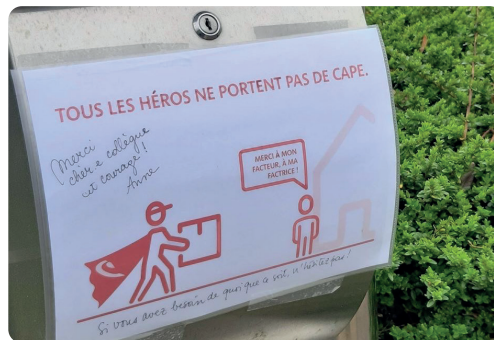 TOUS LES HÉROS NE PORTENT PAS DE CAPE.
Merci
cher·e collègue
et courage !
Anne
MERCI À MON
FACTEUR, À MA
FACTRICE !
Si vous avez besoin de quoi que ce soit, n'hésitez pas !